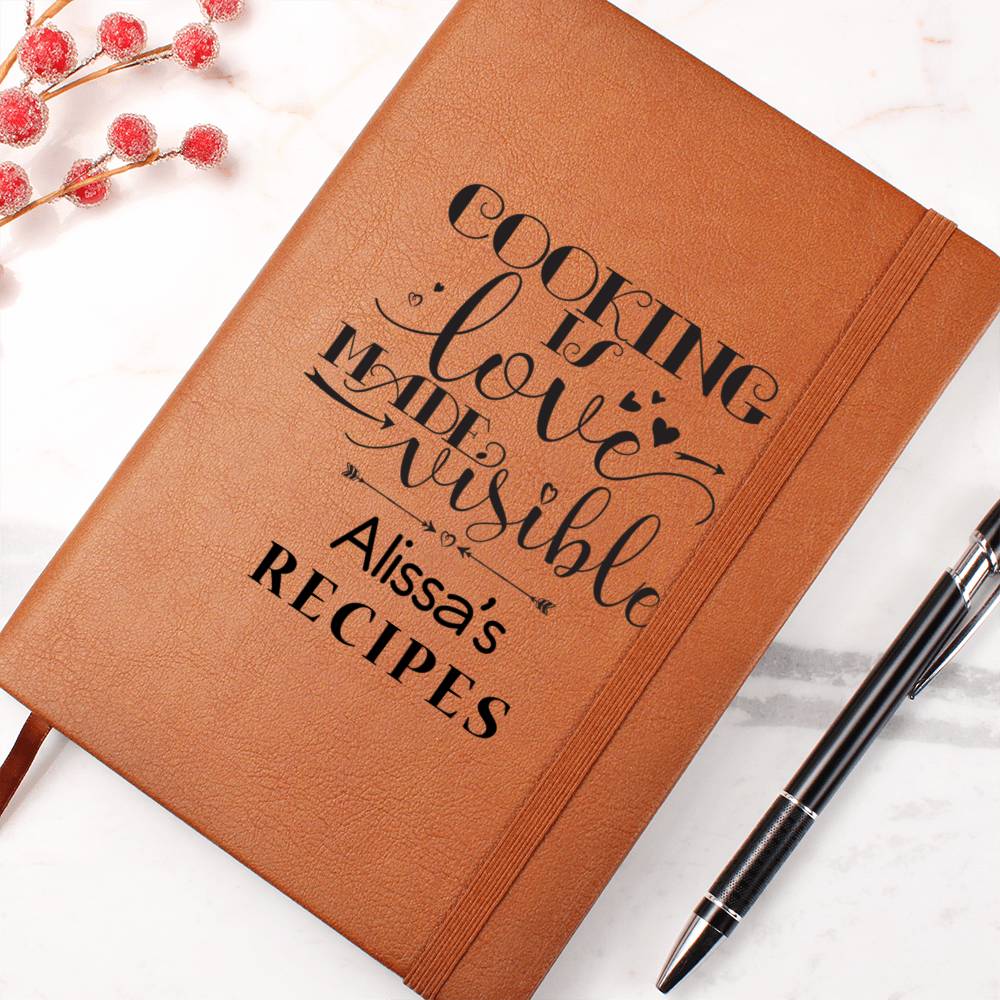 COOKING
IS
love
MADE
visible
Alissa's
RECIPES